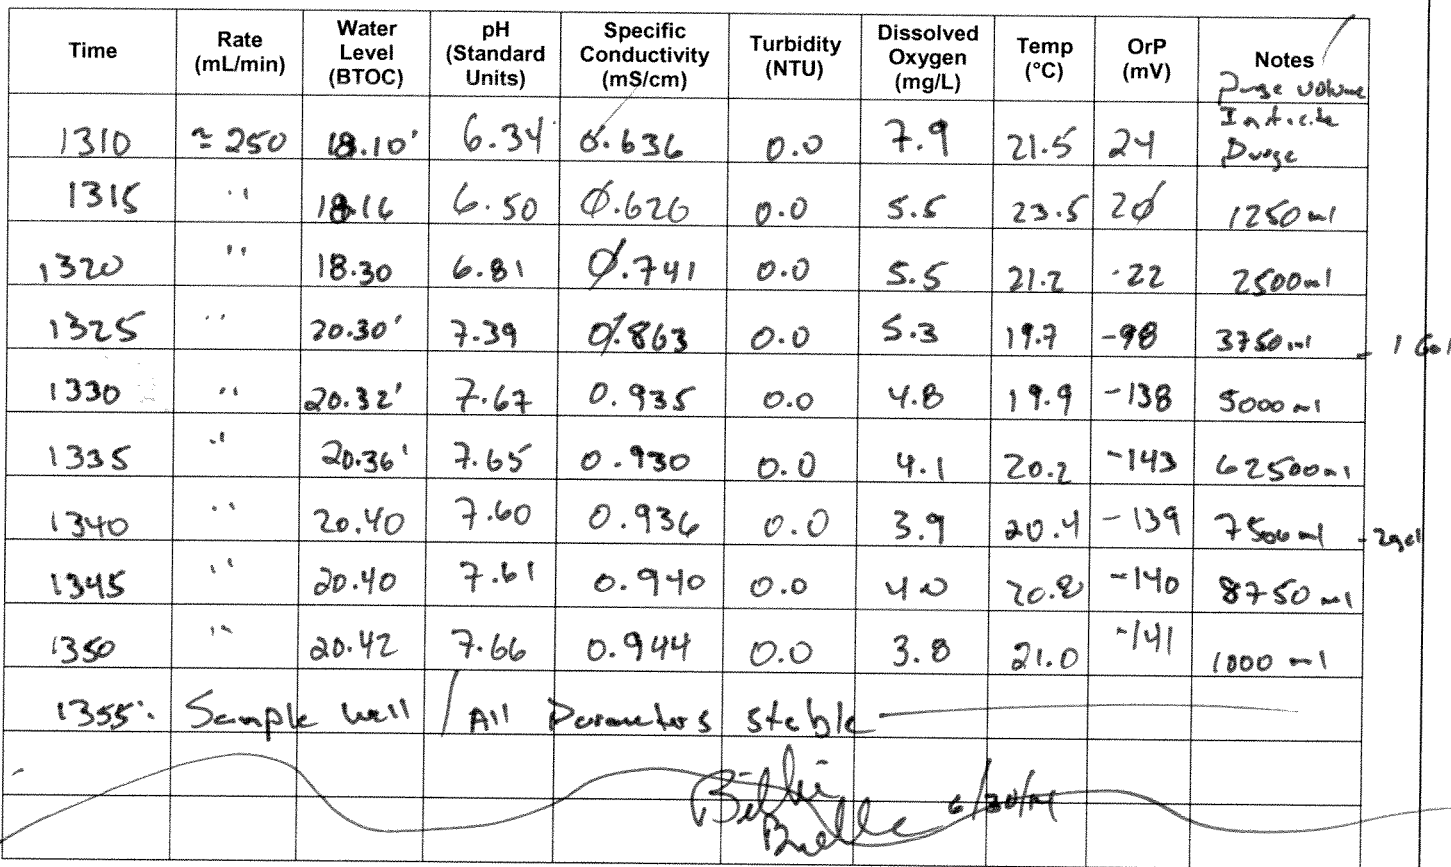 Time Rate (mL/min) Water Level (BTOC) pH (Standard Units) Specific Conductivity (mS/cm) Turbidity (NTU) Dissolved Oxygen (mg/L) Temp (°C) OrP (mV) Notes / Purge volume
1310 ≈ 250 18.10' 6.34 0.636 0.0 7.9 21.5 24 Purge
1315 " 18.16 6.50 0.626 0.0 5.5 23.5 20 1250 ml
1320 " 18.30 6.81 0.741 0.0 5.5 21.2 -22 2500 ml
1325 " 20.30' 7.39 0.863 0.0 5.3 19.7 -98 3750 ml - 1 Gal
1330 " 20.32' 7.67 0.935 0.0 4.8 19.9 -138 5000 ml
1335 " 20.36' 7.65 0.930 0.0 4.1 20.2 -143 62500 ml
1340 " 20.40 7.60 0.936 0.0 3.9 20.4 -139 7500 ml - 2gal
1345 " 20.40 7.61 0.940 0.0 4.0 20.8 -140 8750 ml
1350 " 20.42 7.66 0.944 0.0 3.8 21.0 -141 1000 ml
1355: Sample well / All Parameters stable
6/30/14